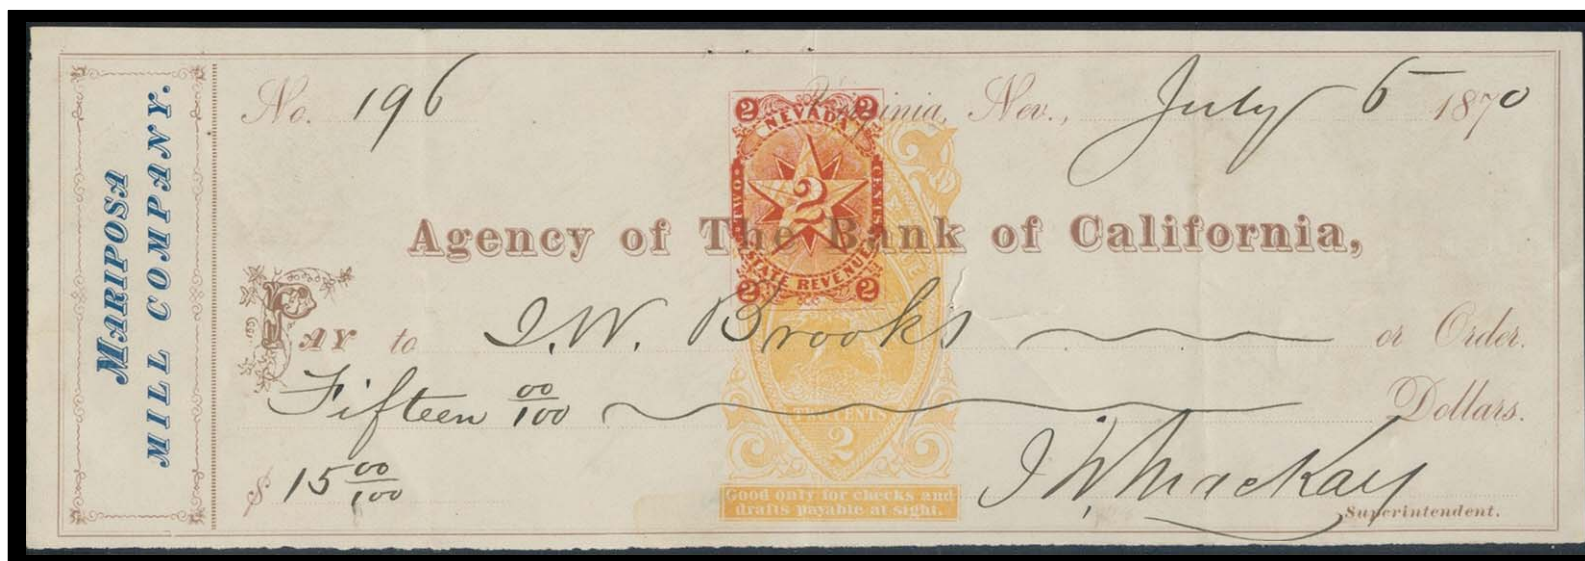 MARIPOSA
MILL COMPANY.
No. 196 Virginia, Nev., July 6 1870
2 NEVADA 2
TWO 2 CENTS
STATE REVENUE
2 2
Agency of The Bank of California,
PAY to J.W. Brooks or Order.
Fifteen 00/100 Dollars.
TWO CENTS
2
$ 15 00/100 J W Mackay
Good only for checks and
drafts payable at sight.
Superintendent.